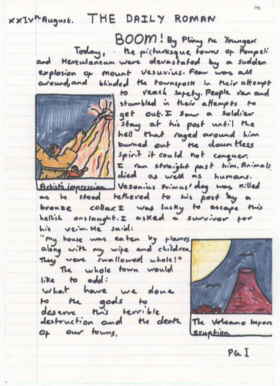 XXIVth August. THE DAILY ROMAN
BOOM! By Pliny the Younger
Today, the picturesque towns of Pompeii
and Herculaneum were devastated by a sudden
explosion of mount Vesuvius. Fear was all
around, and blinded the townsfolk in their attempts
to reach safety. People ran and
stumbled in their attempts to
get out. I saw a soldier
stay at his post until the
hell that raged around him
burned out the dauntless
spirit it could not conquer.
I ran straight past him. Animals
died as well as humans.
Artists impression
Vesonius Primus' dog was killed
as he stood tethered to his post by a
bronze collar. I was lucky to escape this
hellish onslaught. I asked a survivor for
his view. He said:
"My house was eaten by flames
along with my wife and children.
They were swallowed whole!"
The whole town would
like to add:
what have we done
to the gods to
deserve this terrible
destruction and the death
of our towns.
The Volcano before
eruption
PG I